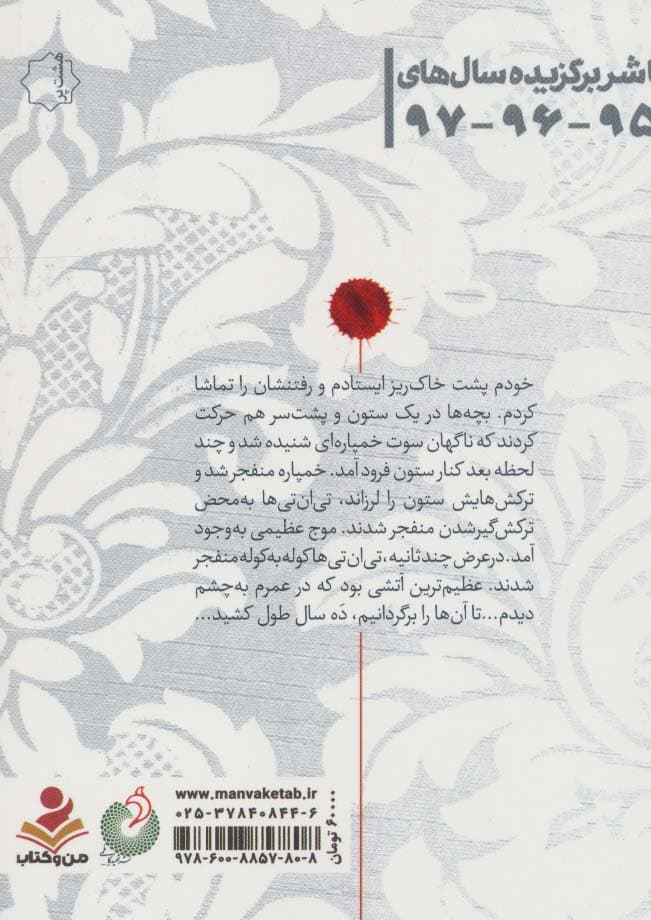 ناشر برگزیده سال‌های
۹۵-۹۶-۹۷
هشت‌پر
خودم پشت خاک‌ریز ایستادم و رفتنشان را تماشا
کردم. بچه‌ها در یک ستون و پشت‌سر هم حرکت
کردند که ناگهان سوت خمپاره‌ای شنیده شد و چند
لحظه بعد کنار ستون فرود آمد. خمپاره منفجر شد و
ترکش‌هایش ستون را لرزاند، تی‌ان‌تی‌ها به‌محض
ترکش‌گیرشدن منفجر شدند. موج عظیمی به‌وجود
آمد. درعرض چند ثانیه، تی‌ان‌تی‌ها کوله‌به‌کوله منفجر
شدند. عظیم‌ترین آتشی بود که در عمرم به‌چشم
دیدم...تا آن‌ها را برگردانیم، دَه سال طول کشید...
www.manvaketab.ir
۰۲۵-۳۷۸۴۰۸۴۴-۶
۹۷۸-۶۰۰-۸۸۵۷-۸۰-۸
۶۰۰۰۰ تومان
من‌وکتاب